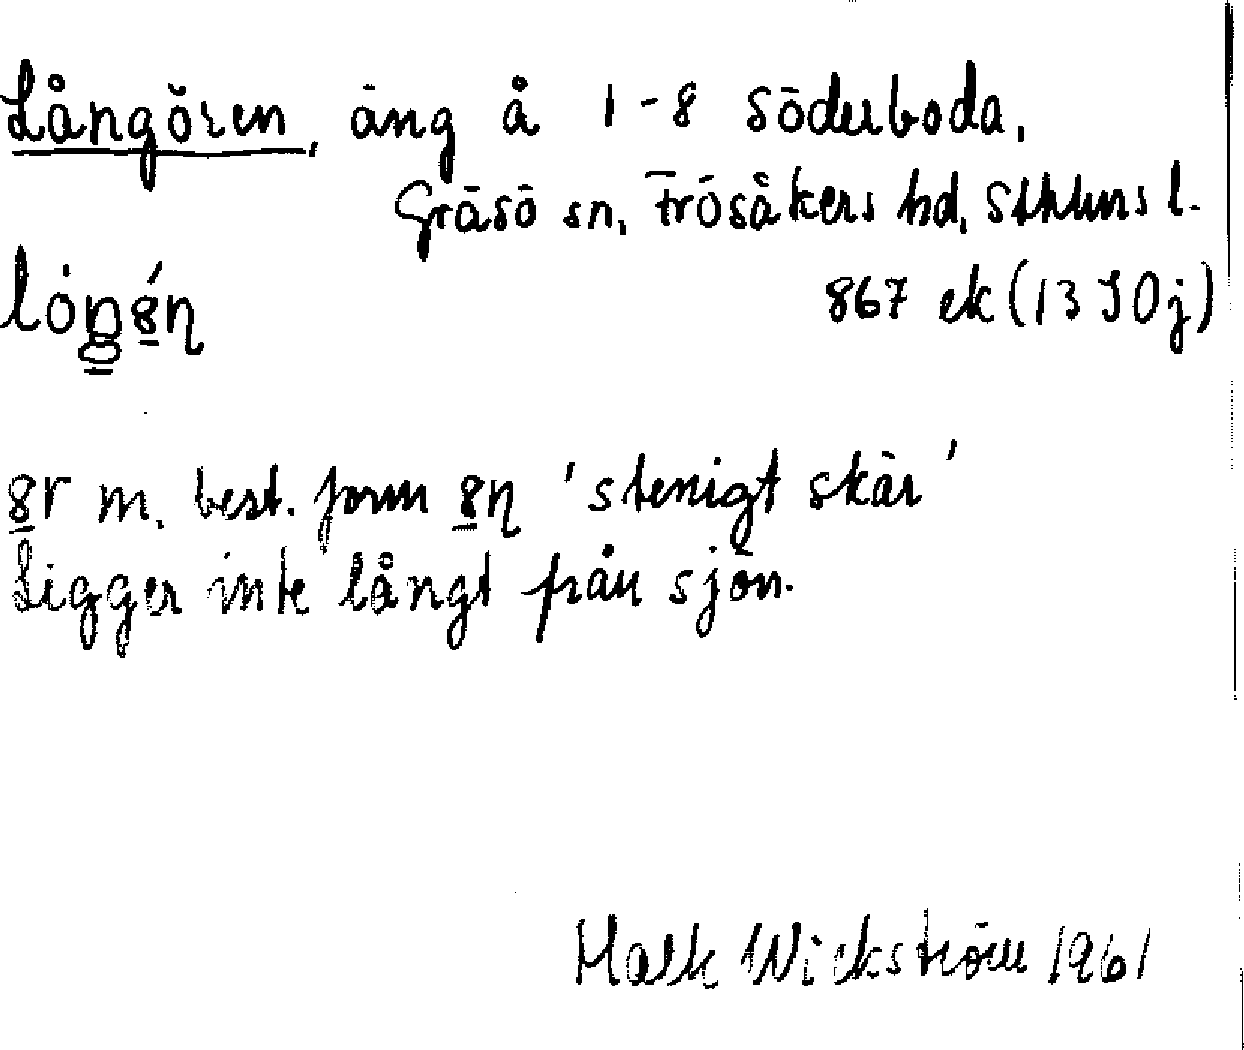 Långören, äng å 1-8 Söderboda,
Gräsö sn, Frösåkers hd, Sthlms l.
867 ek (13 I 0 j)
m. best. form 'stenigt skär'
Ligger inte långt från sjön.
Wickström 1961